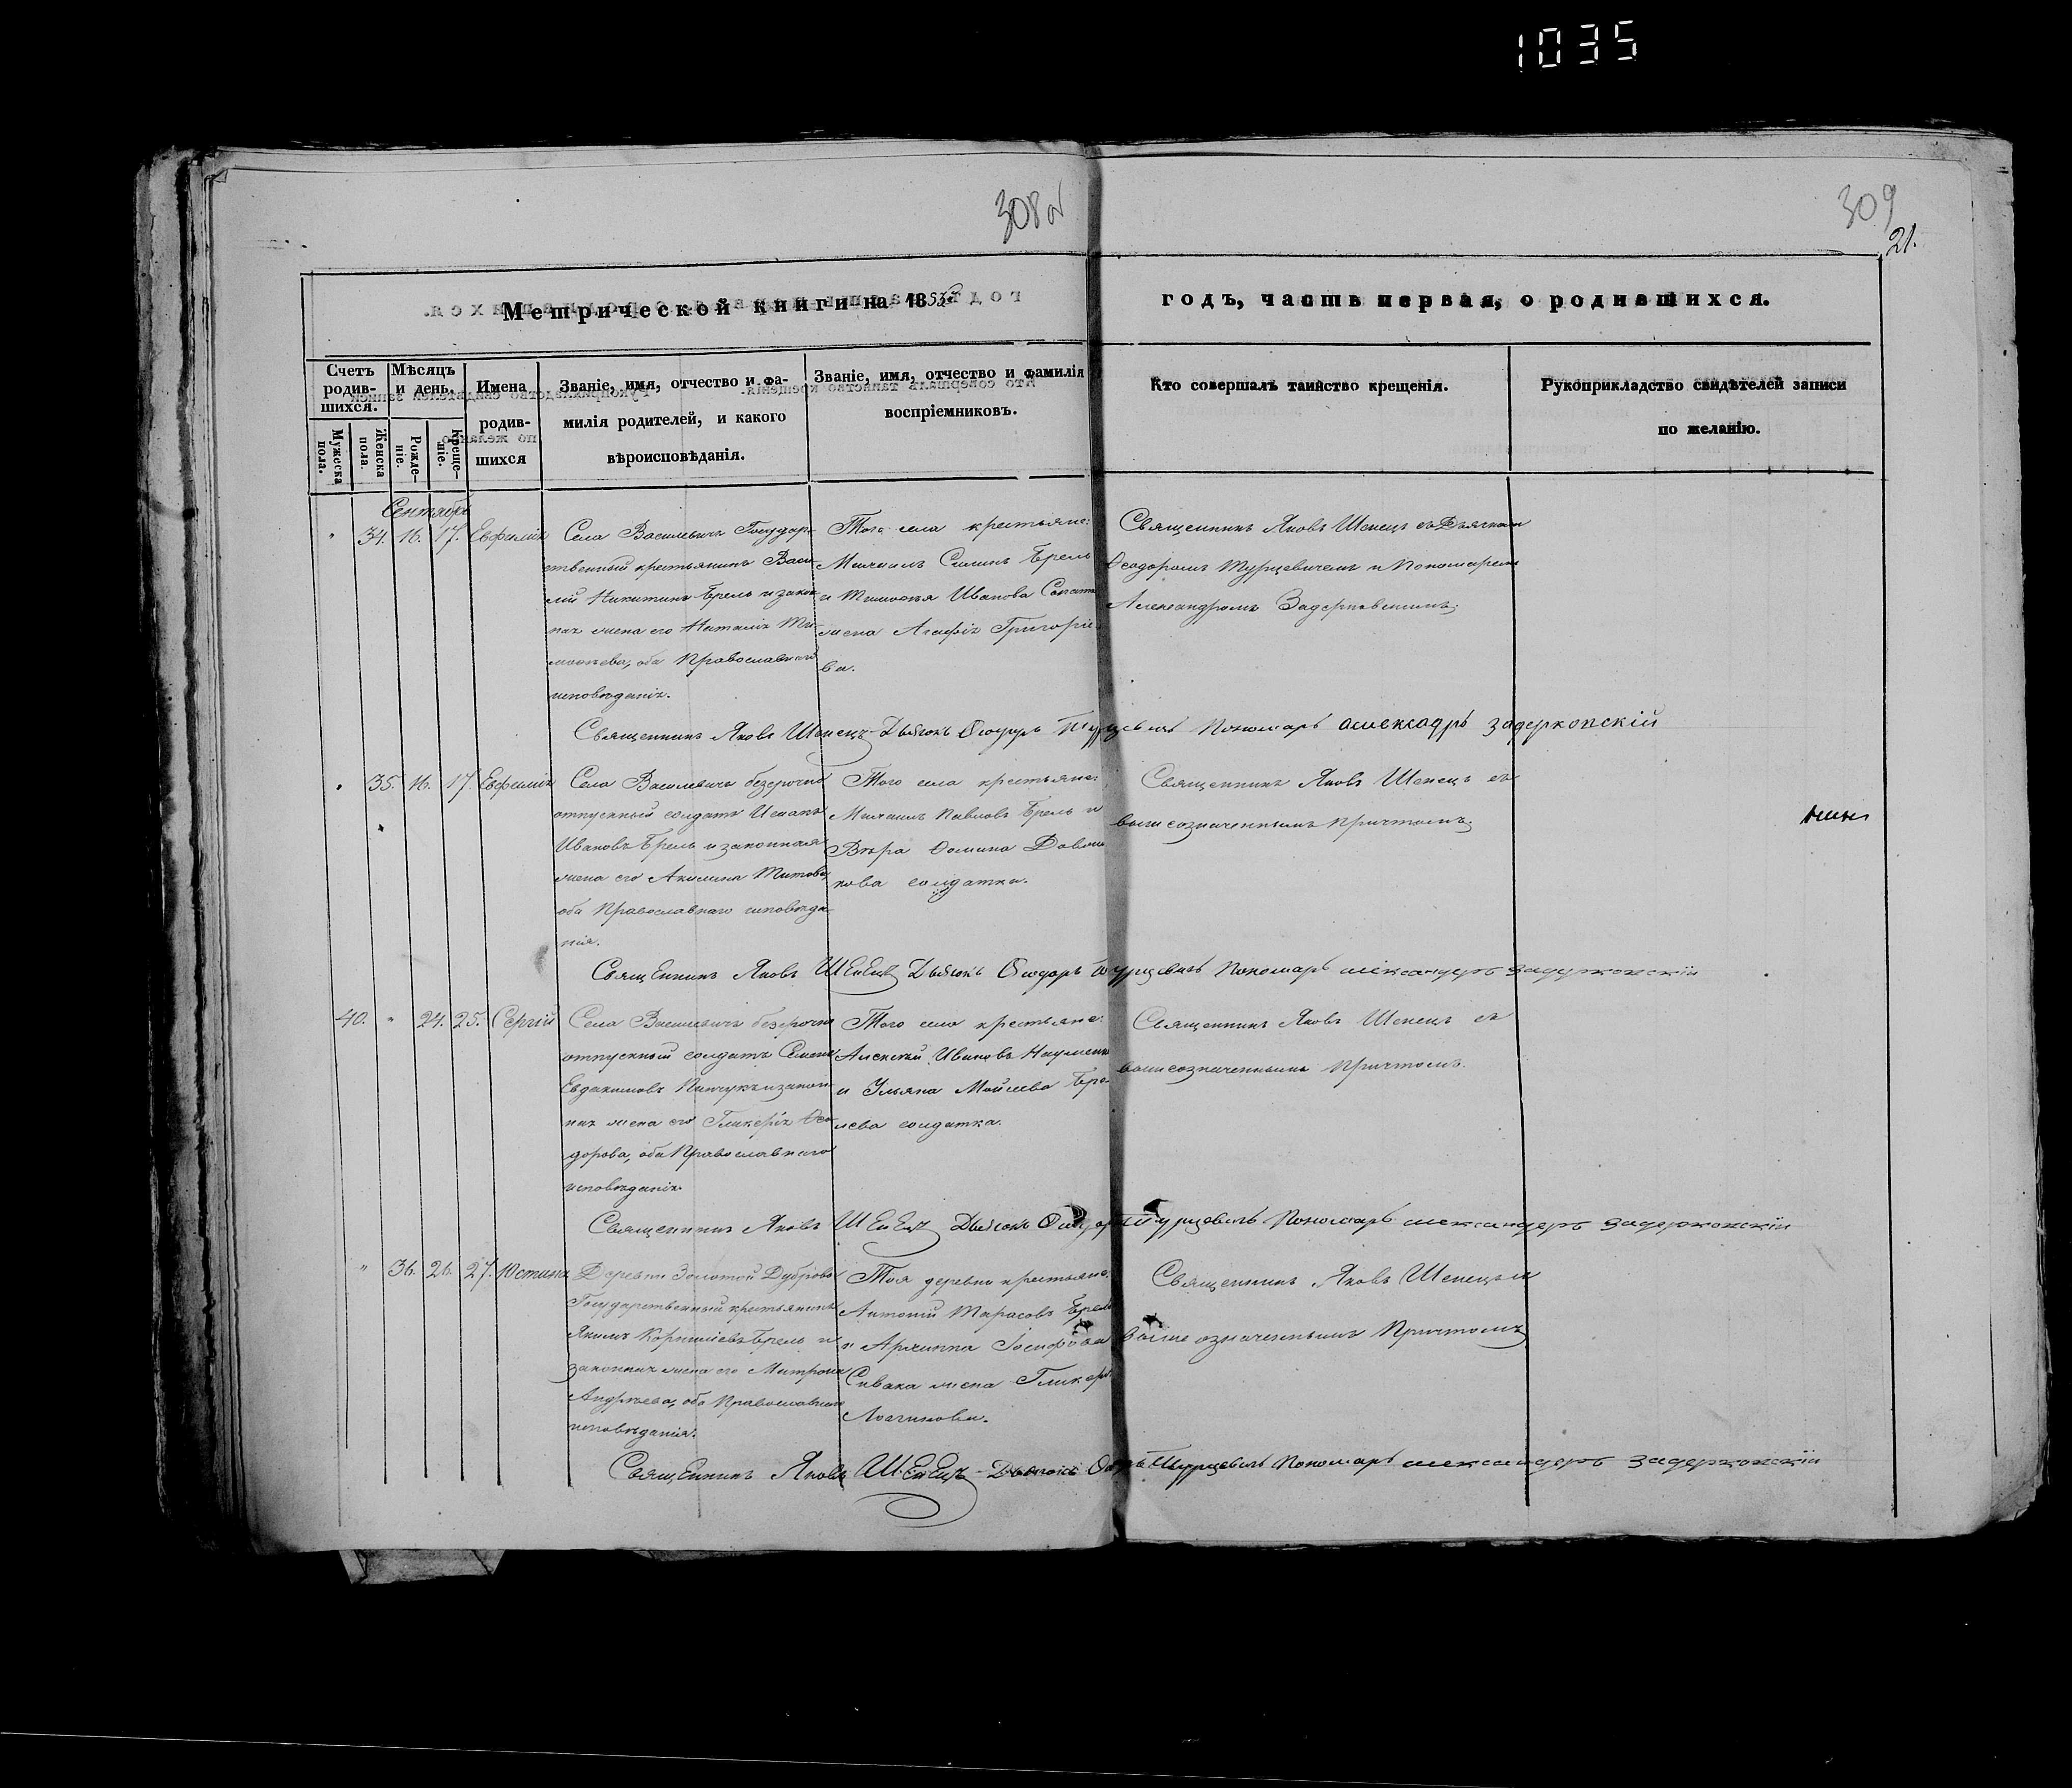 1035
308
309
21.
Метрической книги на 185
годъ, часть первая, о родившихся.
Счетъ родив-шихся.
Мѣсяцъ и день.
Имена родив-шихся
Званіе, имя, отчество и фа-милія родителей, и какого вѣроисповѣданія.
Званіе, имя, отчество и фамилія воспріемниковъ.
Кто совершалъ таинство крещенія.
Рукоприкладство свидѣтелей записи по желанію.
Мужеска пола.
Женска пола.
Рожде-ніе.
Креще-ніе.
Сентябрь
" 34. 16. 17. Евфимія
Села Василевичъ Государ-
ственный крестьянинъ Васи-
лій Никитинъ Брель и закон
ная жена его Наталія Ти-
моѳеева, оба Православнаго
исповѣданія.
Того села крестьяне:
Михаилъ Брель
и Тимоѳея Иванова
жена Агафія Григоріе-
ва.
Священникъ Яковъ Шенецъ съ Дьячкомъ
Ѳеодоромъ Турцевичемъ и Пономаремъ
Александромъ Задерковскимъ.
Священникъ Яковъ Шенецъ Дьячокъ Ѳеодоръ Турцевичъ Пономарь александръ задерковскій
" 35. 16. 17. Евфимія
Села Василевичъ безсрочно
отпускный солдатъ
Ивановъ Брель и законная
жена его Акилина Титова,
оба Православнаго исповѣда-
нія.
Того села крестьяне:
Михаилъ Павловъ Брель и
Вѣра Ѳомина
кова солдатка.
Священникъ Яковъ Шенецъ съ
вышеозначеннымъ Причтомъ.
Священникъ Яковъ Шенецъ Дьячокъ Ѳеодоръ Турцевичъ Пономарь александеръ задерковскій
40. " 24. 25. Сергій
Села Василевичъ безсрочно
отпускный солдатъ Семенъ
Евдакимовъ Пинчукъ и закон
ная жена его Гликерія Ѳео-
дорова, оба Православнаго
исповѣданія.
Того села крестьяне:
Алексѣй Ивановъ Науменко
и Ульяна Мойсеева Бре-
лева солдатка.
Священникъ Яковъ Шенецъ съ
вышеозначеннымъ Причтомъ.
Священникъ Яковъ Шенецъ Дьячокъ Ѳеодоръ Турцевичъ Пономарь александеръ задерковскій
" 36. 26. 27. Юстина
Деревни Золотой Дубровы
Государственный крестьянинъ
Якимъ Корнилiевъ Брель и
законная жена его Матрона
Андреева, оба Православнаго
исповѣданія.
Тоя деревни крестьяне:
Антоній Тарасовъ Брель
и Іосифова
Сивака жена Гликерія
Логинова.
Священникъ Яковъ Шенецъ съ
выше означеннымъ Причтомъ
Священникъ Яковъ Шенецъ Дьячокъ Турцевичъ Пономарь александеръ задерковскій